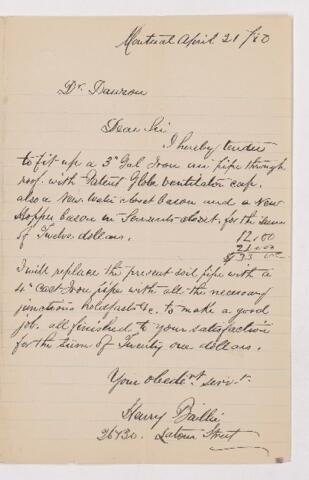 Montreal April 21/80
Dr. Dawson
Dear Sir
I hereby tender
to fit up a 3" Gal Iron air pipe through
roof. with Patent Globe ventilator cap.
also a New water closet bason and a New
Hopper bason in Servants closet. for the sum
of Twelve dollars. 12.00
21.00
$33.00
I will replace the present soil pipe with a
4" cast Iron pipe with all the necessary
junctions holdfasts &c. to make a good
job. all finished to your satisfaction
for the sum of Twenty one dollars.
Your obedt. servt.
Harry Baillie
Latour Street